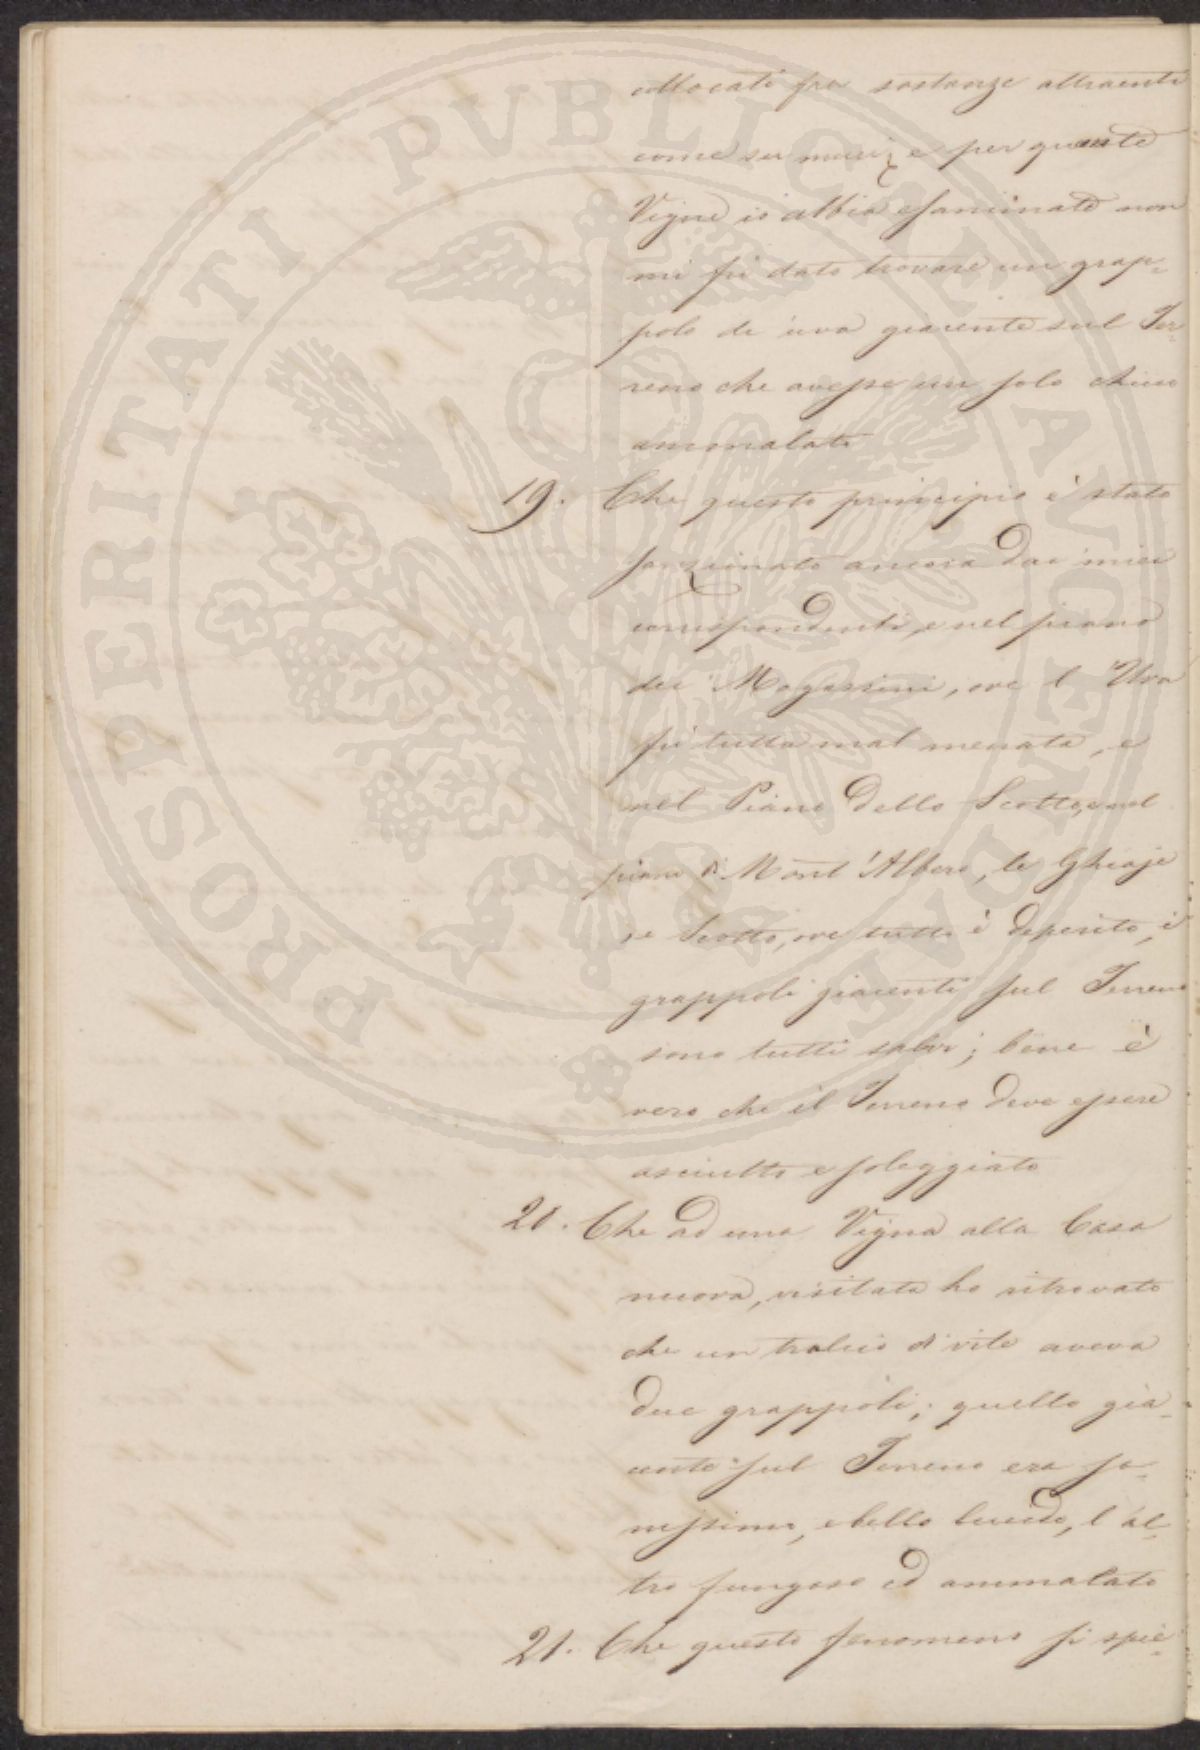 collocati fra sostanze attraenti
come su muri, e per quante
Vigne io abbia esaminato non
mi fu dato trovare un grap-
polo di uva giacente sul Ter-
reno che avesse un solo chicco
ammalato
19. Che questo principio è stato
sanzionato ancora dai miei
corrispondenti, e nel piano
dei Magazzini, ove l'Uva
fu tutta mal menata, e
nel Piano dello Scotto, e nel
piano di Mont'Albero, le Ghiaje
se Scotto, ove tutto è deperito, i
grappoli giacenti sul Terreno
sono tutti salvi; bene è
vero che il Terreno deve essere
asciutto e soleggiato
20. Che ad una Vigna alla Casa
nuova, visitata ho ritrovato
che un tralcio di vite aveva
due grappoli; quello gia-
cente sul Terreno era sa-
nissimo, e bello lucido, l'al-
tro fungoso ed ammalato
21. Che questo fenomeno si spie-
PROSPERITATI PVBLICAE AVGENDAE